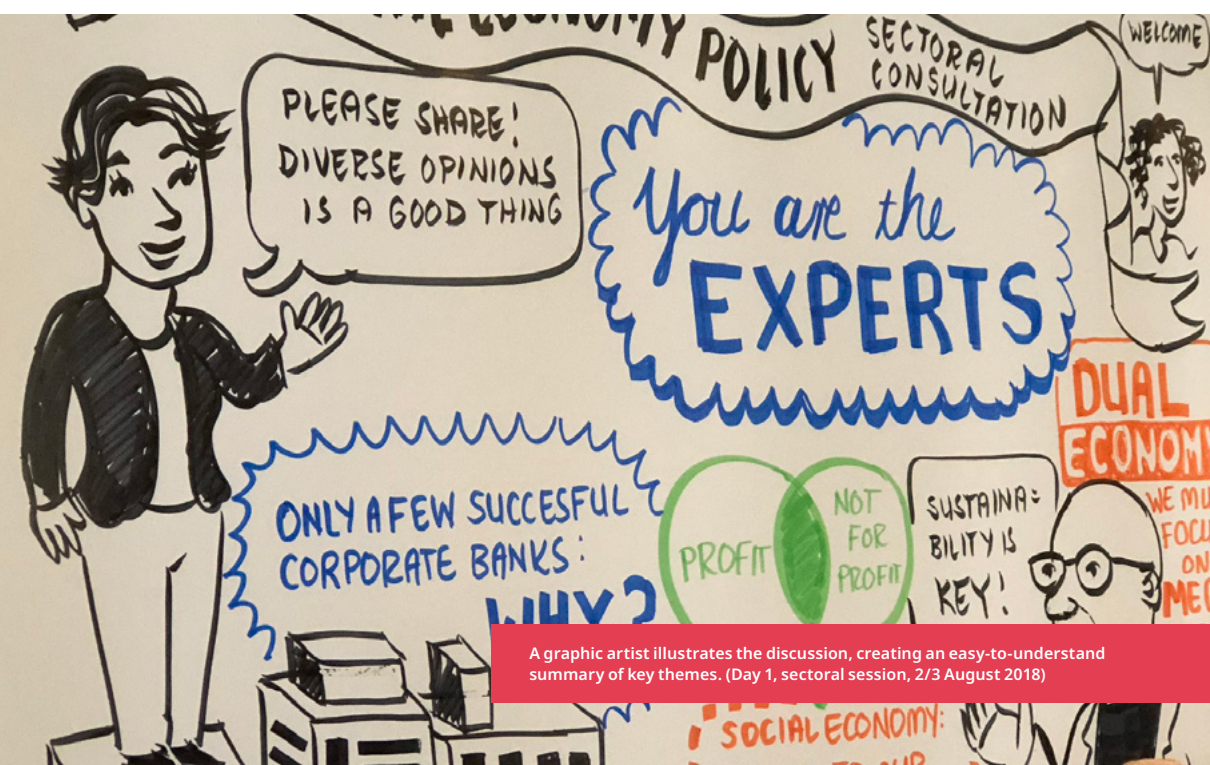 ECONOMY POLICY
SECTORAL
CONSULTATION
WELCOME
PLEASE SHARE!
DIVERSE OPINIONS
IS A GOOD THING
You are the
EXPERTS
DUAL
ECONOM
WE MU
FOCU
ON
ME
ONLY A FEW SUCCESFUL
CORPORATE BANKS:
WHY?
PROFIT
NOT
FOR
PROFIT
SUSTAINA=
BILITY IS
KEY!
A graphic artist illustrates the discussion, creating an easy-to-understand
summary of key themes. (Day 1, sectoral session, 2/3 August 2018)
SOCIAL ECONOMY: